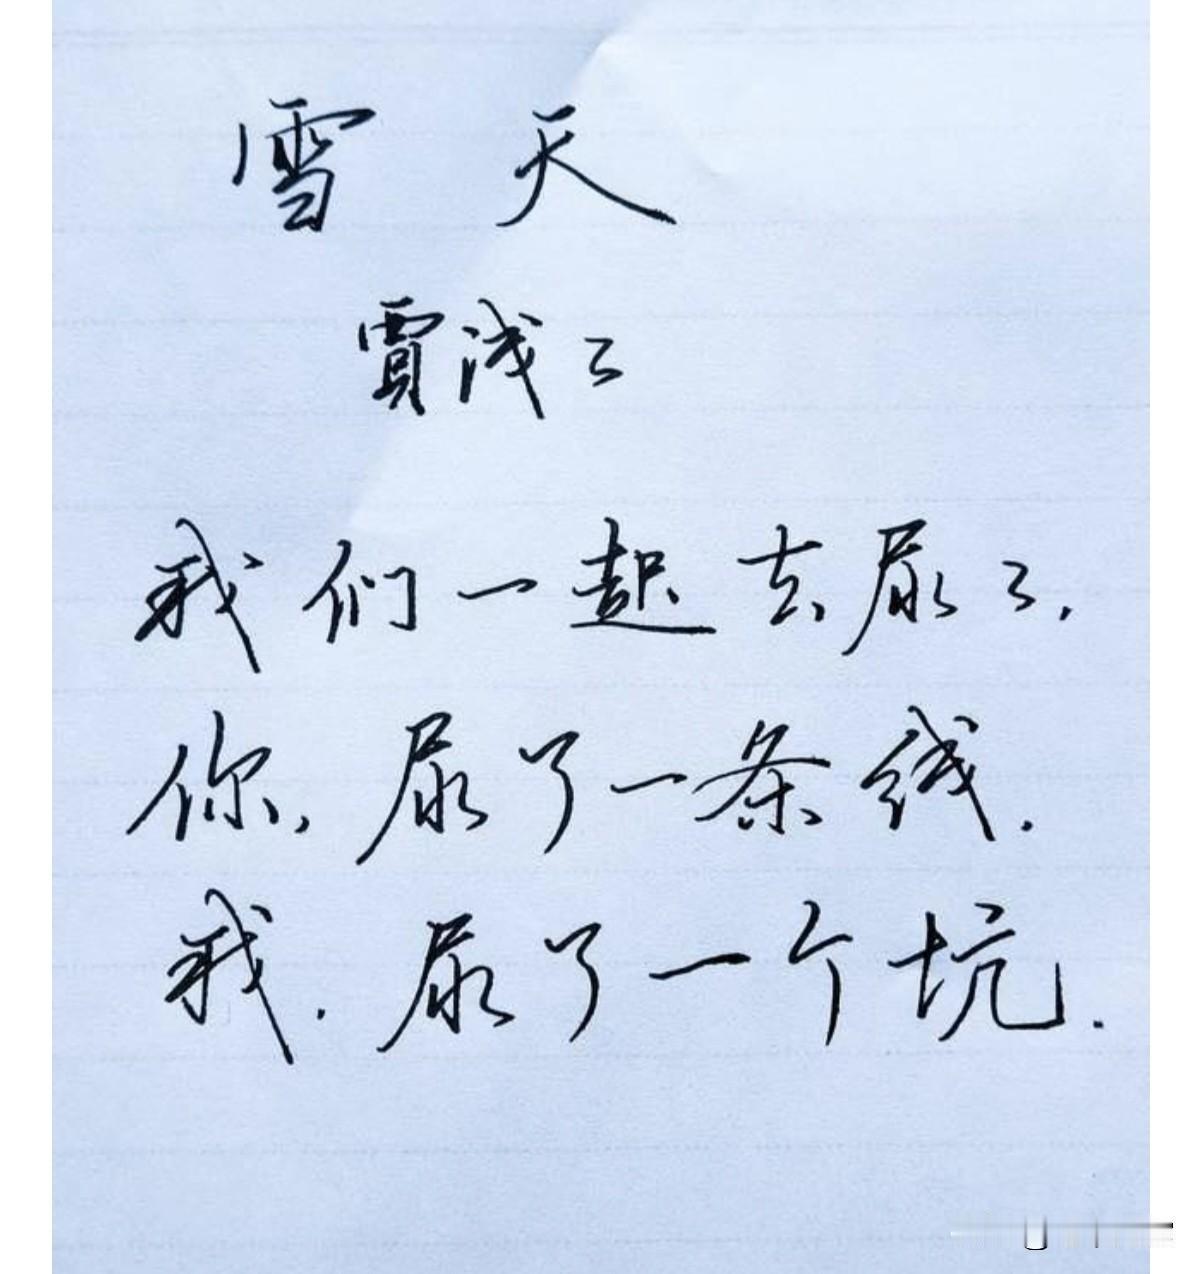 雪 天
賈浅々
我们一起去尿尿,
你,尿了一条线.
我.尿了一个坑.